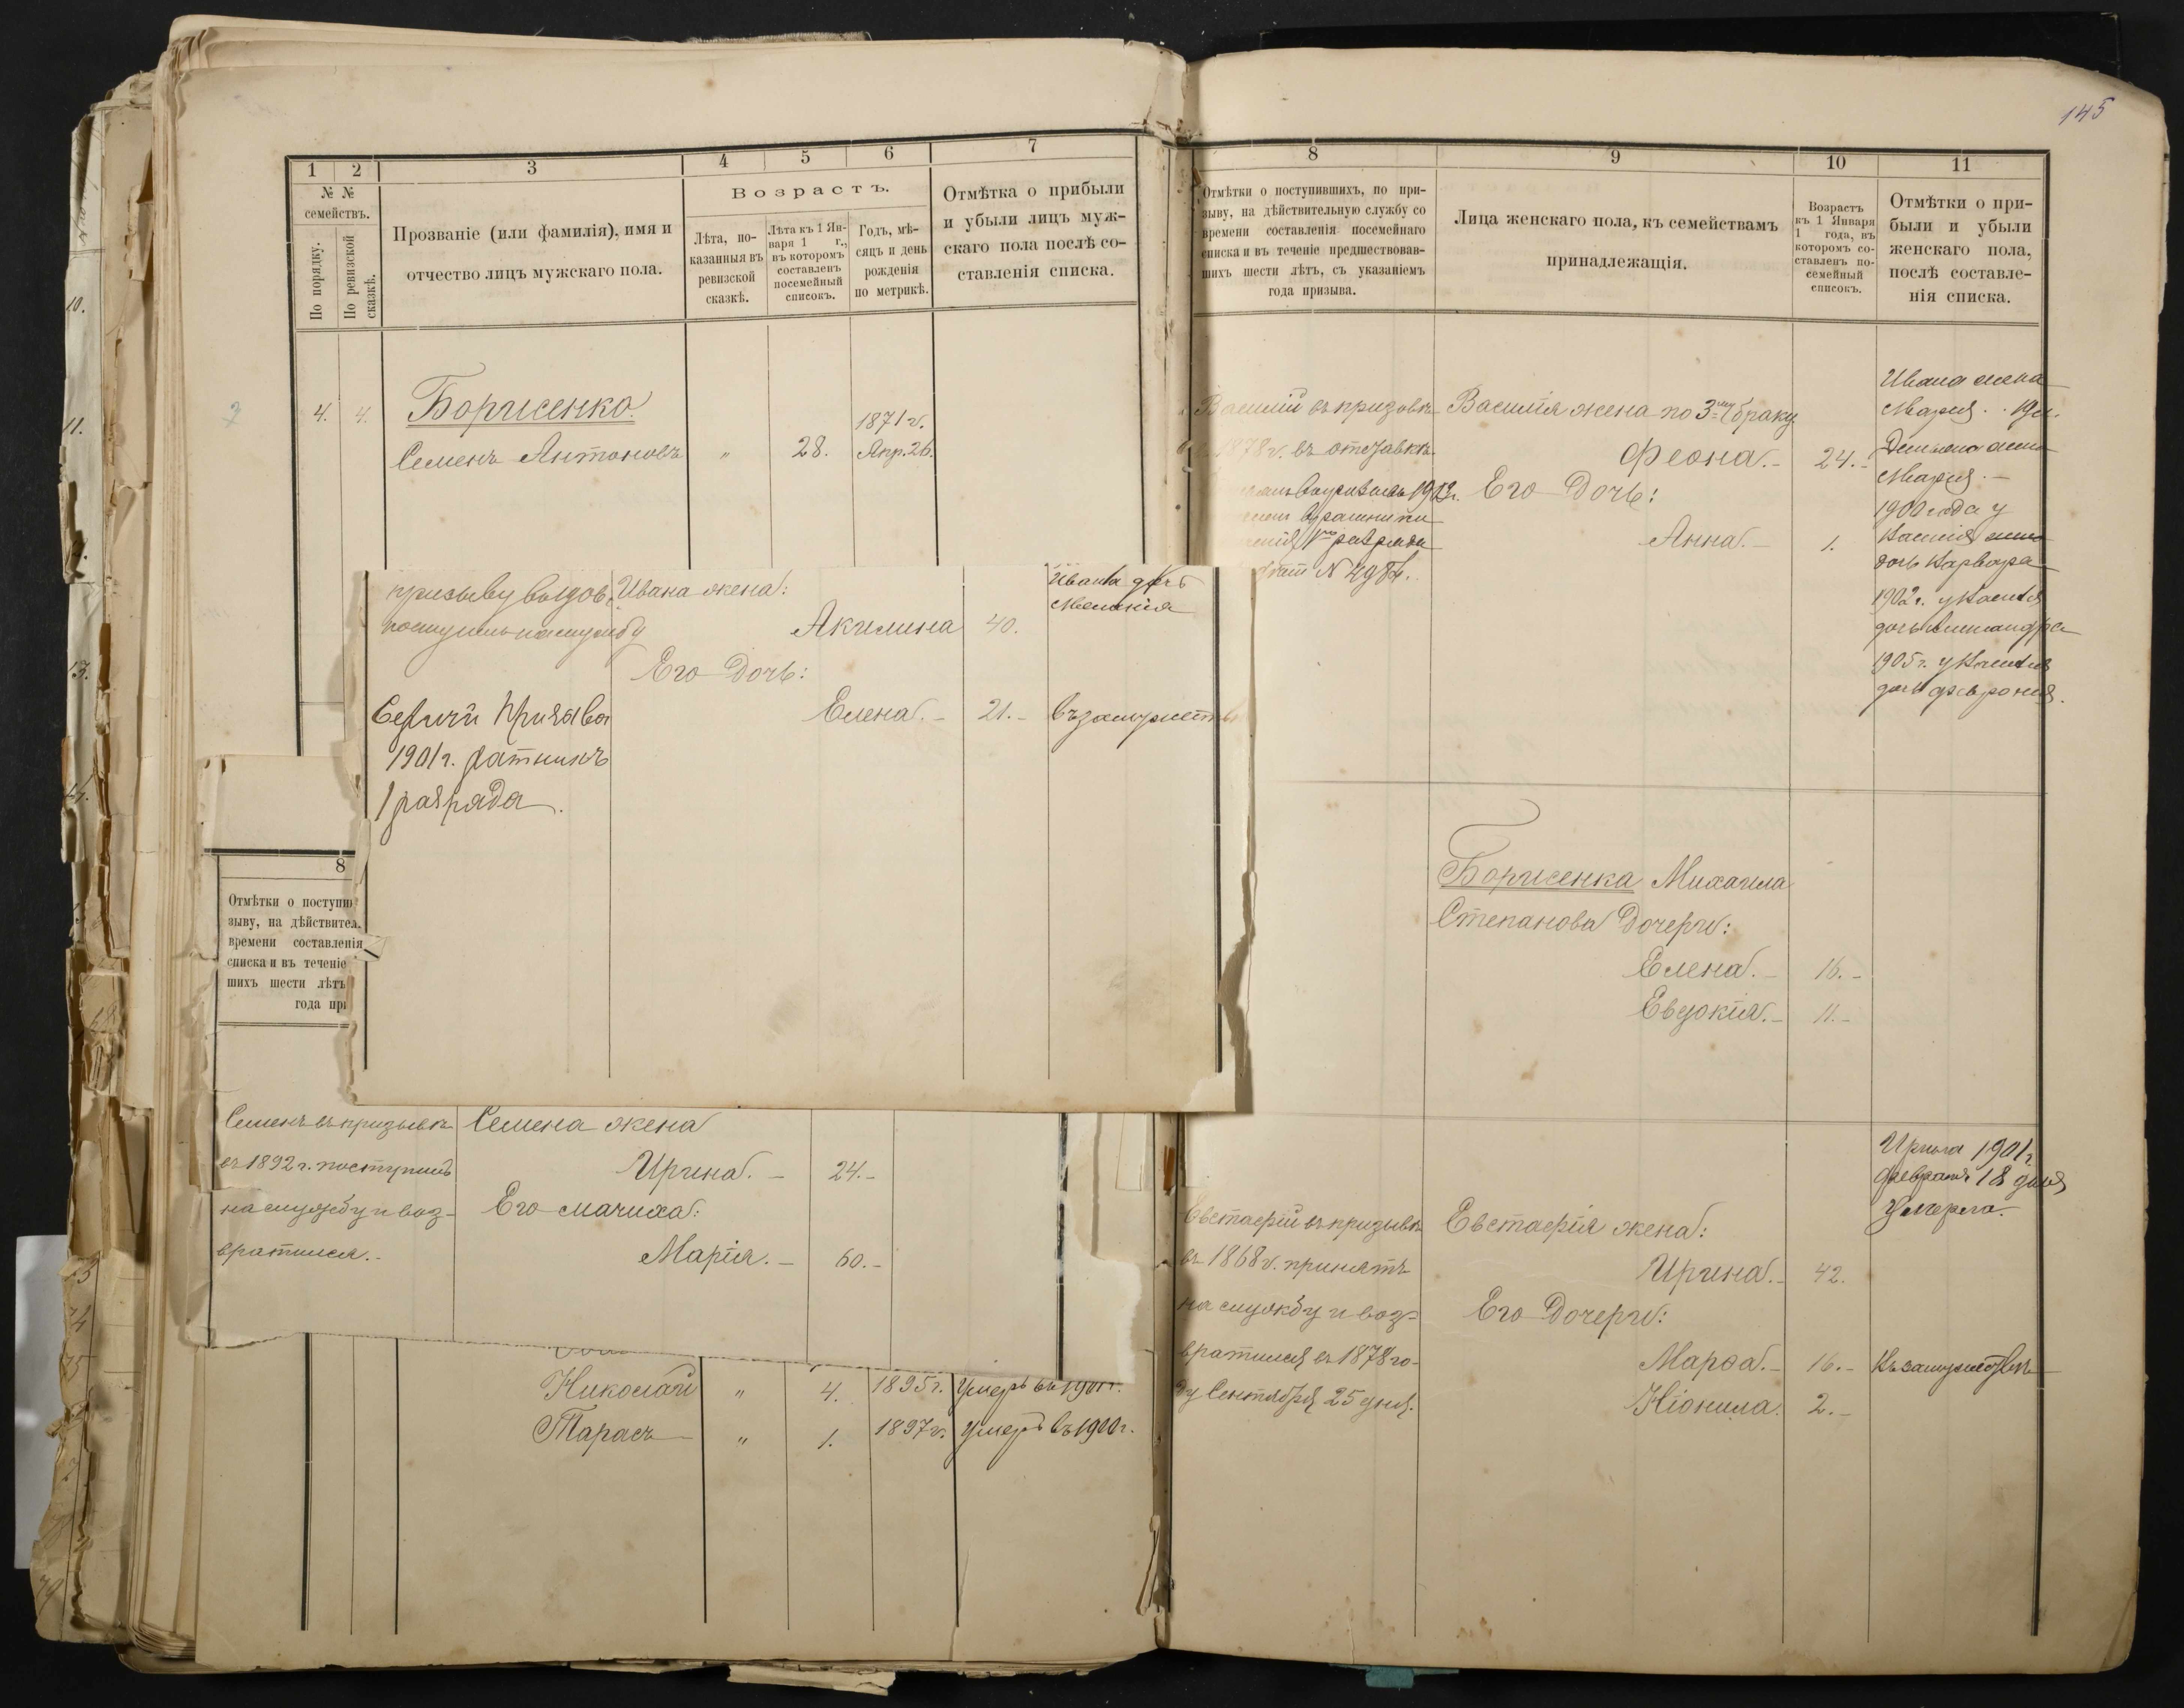 1 2 3 4 5 6 7
№ №
семействъ.
По порядку.
По ревизской
сказкѣ.
Прозваніе (или фамилія), имя и
отчество лицъ мужскаго пола.
Возрастъ.
Лѣта, по-
казанныя въ
ревизской
сказкѣ.
Лѣта къ 1 Ян-
варя 1 г.,
въ которомъ
составленъ
посемейный
списокъ.
Годъ, мѣ-
сяцъ и день
рожденія
по метрикѣ.
Отмѣтка о прибыли
и убыли лицъ муж-
скаго пола послѣ со-
ставленія списка.
4. 4. Борисенко
1871 г.
Семенъ Антоновъ " 28. Апр. 26.
Ивана жена:
поступилъ на службу
Акилина 40.
Ивана дочь
Его дочь:
Елена. 21. въ замужеств
Сергій призыва
1901 г. ратникъ
1 разряда.
8
Отмѣтки о поступи
зыву, на дѣйствител
времени составленія
списка и въ теченіе
шихъ шести лѣтъ
года при
Семенъ въ призывѣ
въ 1892 г. поступилъ
на службу и воз-
вратился.
Семена жена
Ирина. 24.
Его мачиха:
Марія. 60.
Николай " 4. 1895 г. умеръ въ
Тарасъ " 1. 1897 г. умеръ въ 1900 г.
145
8 9 10 11
Отмѣтки о поступившихъ, по при-
зыву, на дѣйствительную службу со
времени составленія посемейнаго
списка и въ теченіе предшествовав-
шихъ шести лѣтъ, съ указаніемъ
года призыва.
Лица женскаго пола, къ семействамъ
принадлежащія.
Возрастъ
къ 1 Января
1 года, въ
которомъ со-
ставленъ по-
семейный
списокъ.
Отмѣтки о при-
были и убыли
женскаго пола,
послѣ составле-
нія списка.
Василій въ призывѣ
1878 г. въ отставкѣ.
1го разряда
№ 4984.
Василія жена по 3му браку
Феона. 24.
Его дочь:
Анна. 1.
Ивана жена
Марія.
Марія.
1900 года у
Василія
дочь Варвара
1902 г. у Василія
дочь Александра
1905 г. у Василія
дочь Феврония.
Борисенка Михаила
Степанова дочери:
Елена. 16.
Евдокія. 11.
Евстафій въ призывѣ
въ 1868 г. принятъ
на службу и воз-
вратился въ 1878 го-
ду Сентября 25 дня.
Евстафія жена:
Ирина. 42.
Его дочери:
Марѳа. 16. Въ замужествѣ
Ніонила. 2.
Ирина 1901 г.
февраля 18 дня
умерла.